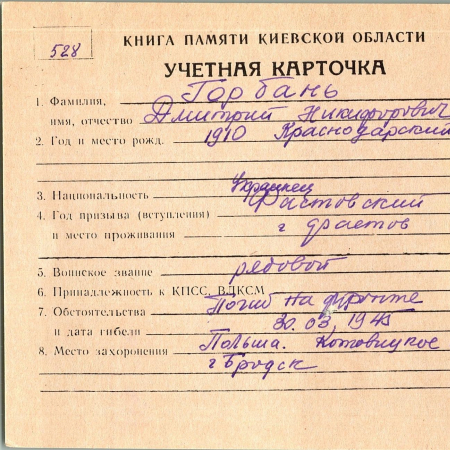 528
КНИГА ПАМЯТИ КИЕВСКОЙ ОБЛАСТИ
УЧЕТНАЯ КАРТОЧКА
1. Фамилия, Горбань
имя, отчество Дмитрий Никифорович
2. Год и место рожд. 1910 Краснодарский
3. Национальность Украинец
4. Год призыва (вступления) Фастовский
и место проживания г фастов
5. Воинское звание рядовой
6. Принадлежность к КПСС, ВЛКСМ
7. Обстоятельства Погиб на фронте
и дата гибели 30.03, 1945
8. Место захоронения Польша. Котовицкое
г Бродск